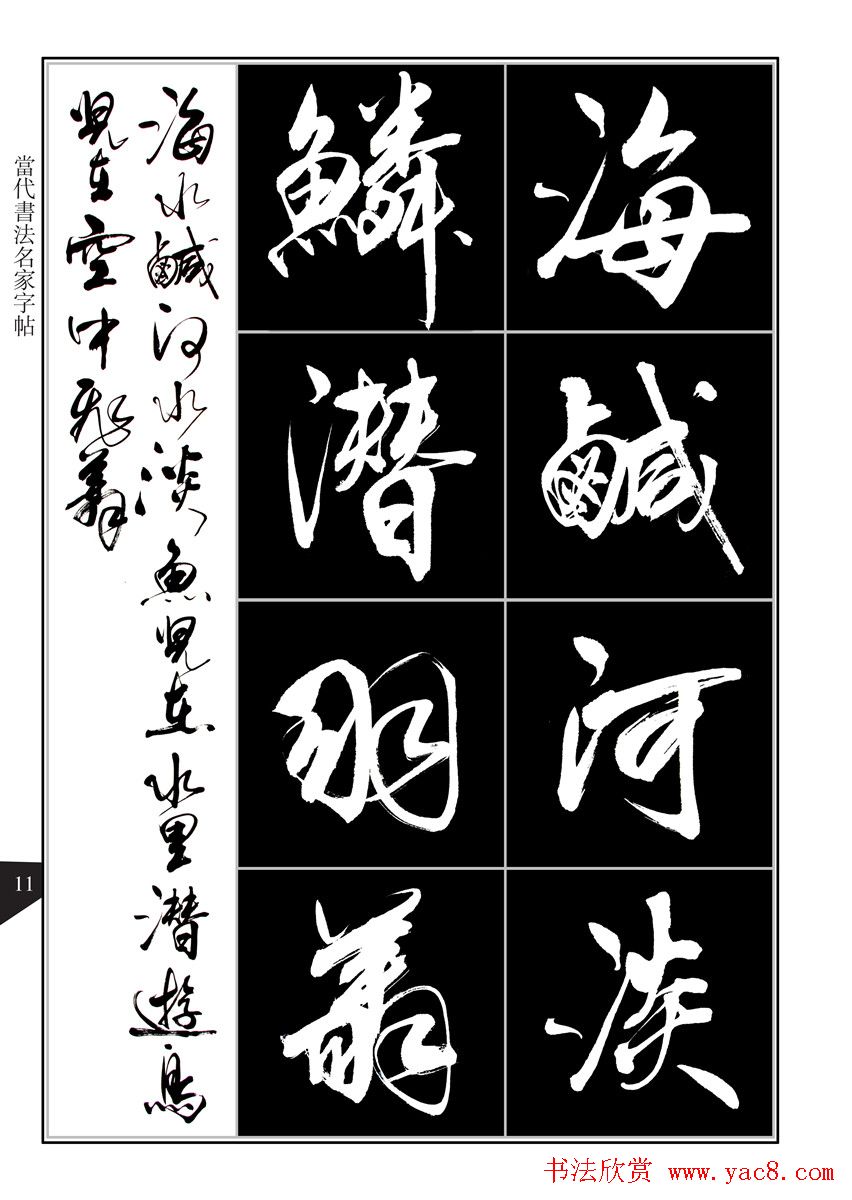 當代書法名家字帖
海鹹河淡
鱗潜羽翔
海水鹹河水淡魚兒在水里潜遊鳥
兒在空中飛翔
11
书法欣赏 www.yac8.com